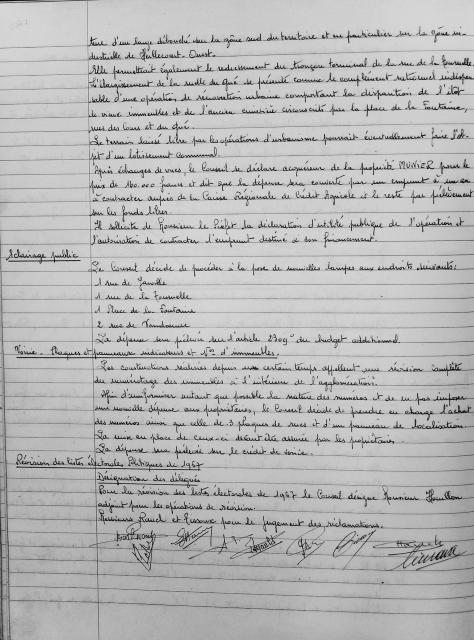 terre d'un large débouché sur la zône sud du territoire et en particulier sur la zône in-
dustrielle de Heillecourt-Ouest.
Elle permettrait également le redressement du tronçon terminal de la rue de la Fournelle
L'élargissement de la ruelle du Gué se présente comme le complément rationnel indispen-
sable d'une opération de rénovation urbaine comportant la disparition de l'îlot
de vieux immeubles et de l'ancien cimetière circonscrit par la place de la Fontaine,
rues des Cours et du Gué.
Le terrain laissé libre par les opérations d'urbanisme pourrait éventuellement faire l'ob-
jet d'un lotissement communal.
Après échanges de vues, le Conseil se déclare acquéreur de la propriété MUNIER pour le
prix de 160.000 francs et dit que la dépense sera couverte par un emprunt à
à contracter auprès de la Caisse Régionale de Crédit Agricole et le reste par prélèvement
sur les fonds libres.
Il sollicite de Monsieur le Préfet la déclaration d'utilité publique de l'opération et
l'autorisation de contracter l'emprunt destiné à son financement.
Eclairage public
Le Conseil décide de procéder à la pose de nouvelles lampes aux endroits suivants:
1 rue de
1 rue de la Fournelle
1 Place de la Fontaine
2 rue de Vandoeuvre
La dépense sera prélevée sur l'article 2309 du budget additionnel.
Voirie - Plaques et panneaux indicateurs et Nos d'immeubles.
Les constructions réalisées depuis un certain temps appellent une révision complète
du numérotage des immeubles à l'intérieur de l'agglomération.
Afin d'uniformiser autant que possible la nature des numéros et de ne pas imposer
une nouvelle dépense aux propriétaires, le Conseil décide de prendre en charge l'achat
des numéros ainsi que celle de 3 plaques de rues et d'un panneau de localisation.
La mise en place de ceux-ci devant être assurée par les propriétaires.
La dépense sera prélevée sur le crédit de voirie.
Révision des listes électorales Politiques de 1967
Désignation des délégués
Pour la révision des listes électorales de 1967 le Conseil désigne Monsieur Houillon
adjoint pour les opérations de révision.
Messieurs Rauch et pour le jugement des réclamations.